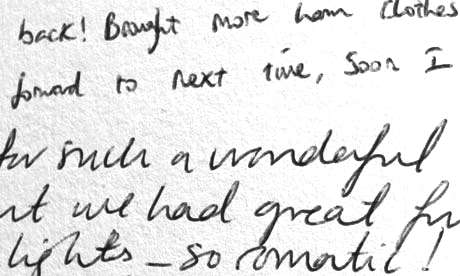 back! Brought more warm clothes
forward to next time, Soon I
for such a wonderful
we had great
lights - so romatic!